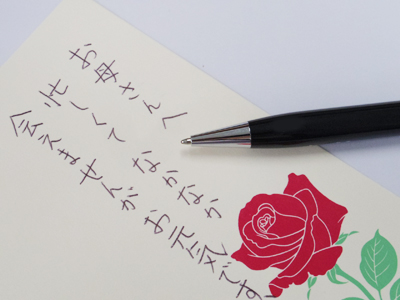 お母さんへ
忙しくて なかなか
会えませんが お元気です